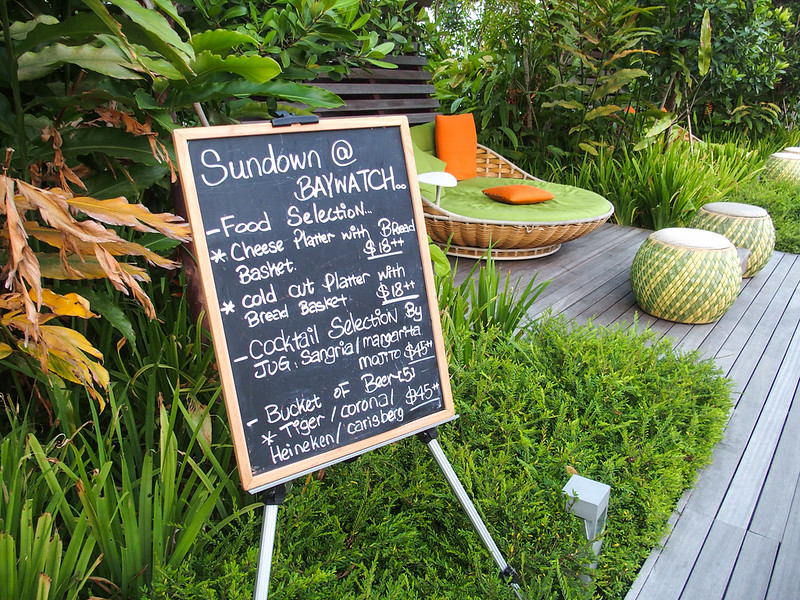 Sundown @
BAYWATCH..
- Food Selection...
* Cheese Platter with Bread
Basket. $18++
* cold cut Platter with
Bread Basket $18++
- Cocktail Selection By
JUG: Sangria/margarita
mojito $45++
- Bucket of Beer(5)
* Tiger/corona/ $45++
Heineken/carlsberg